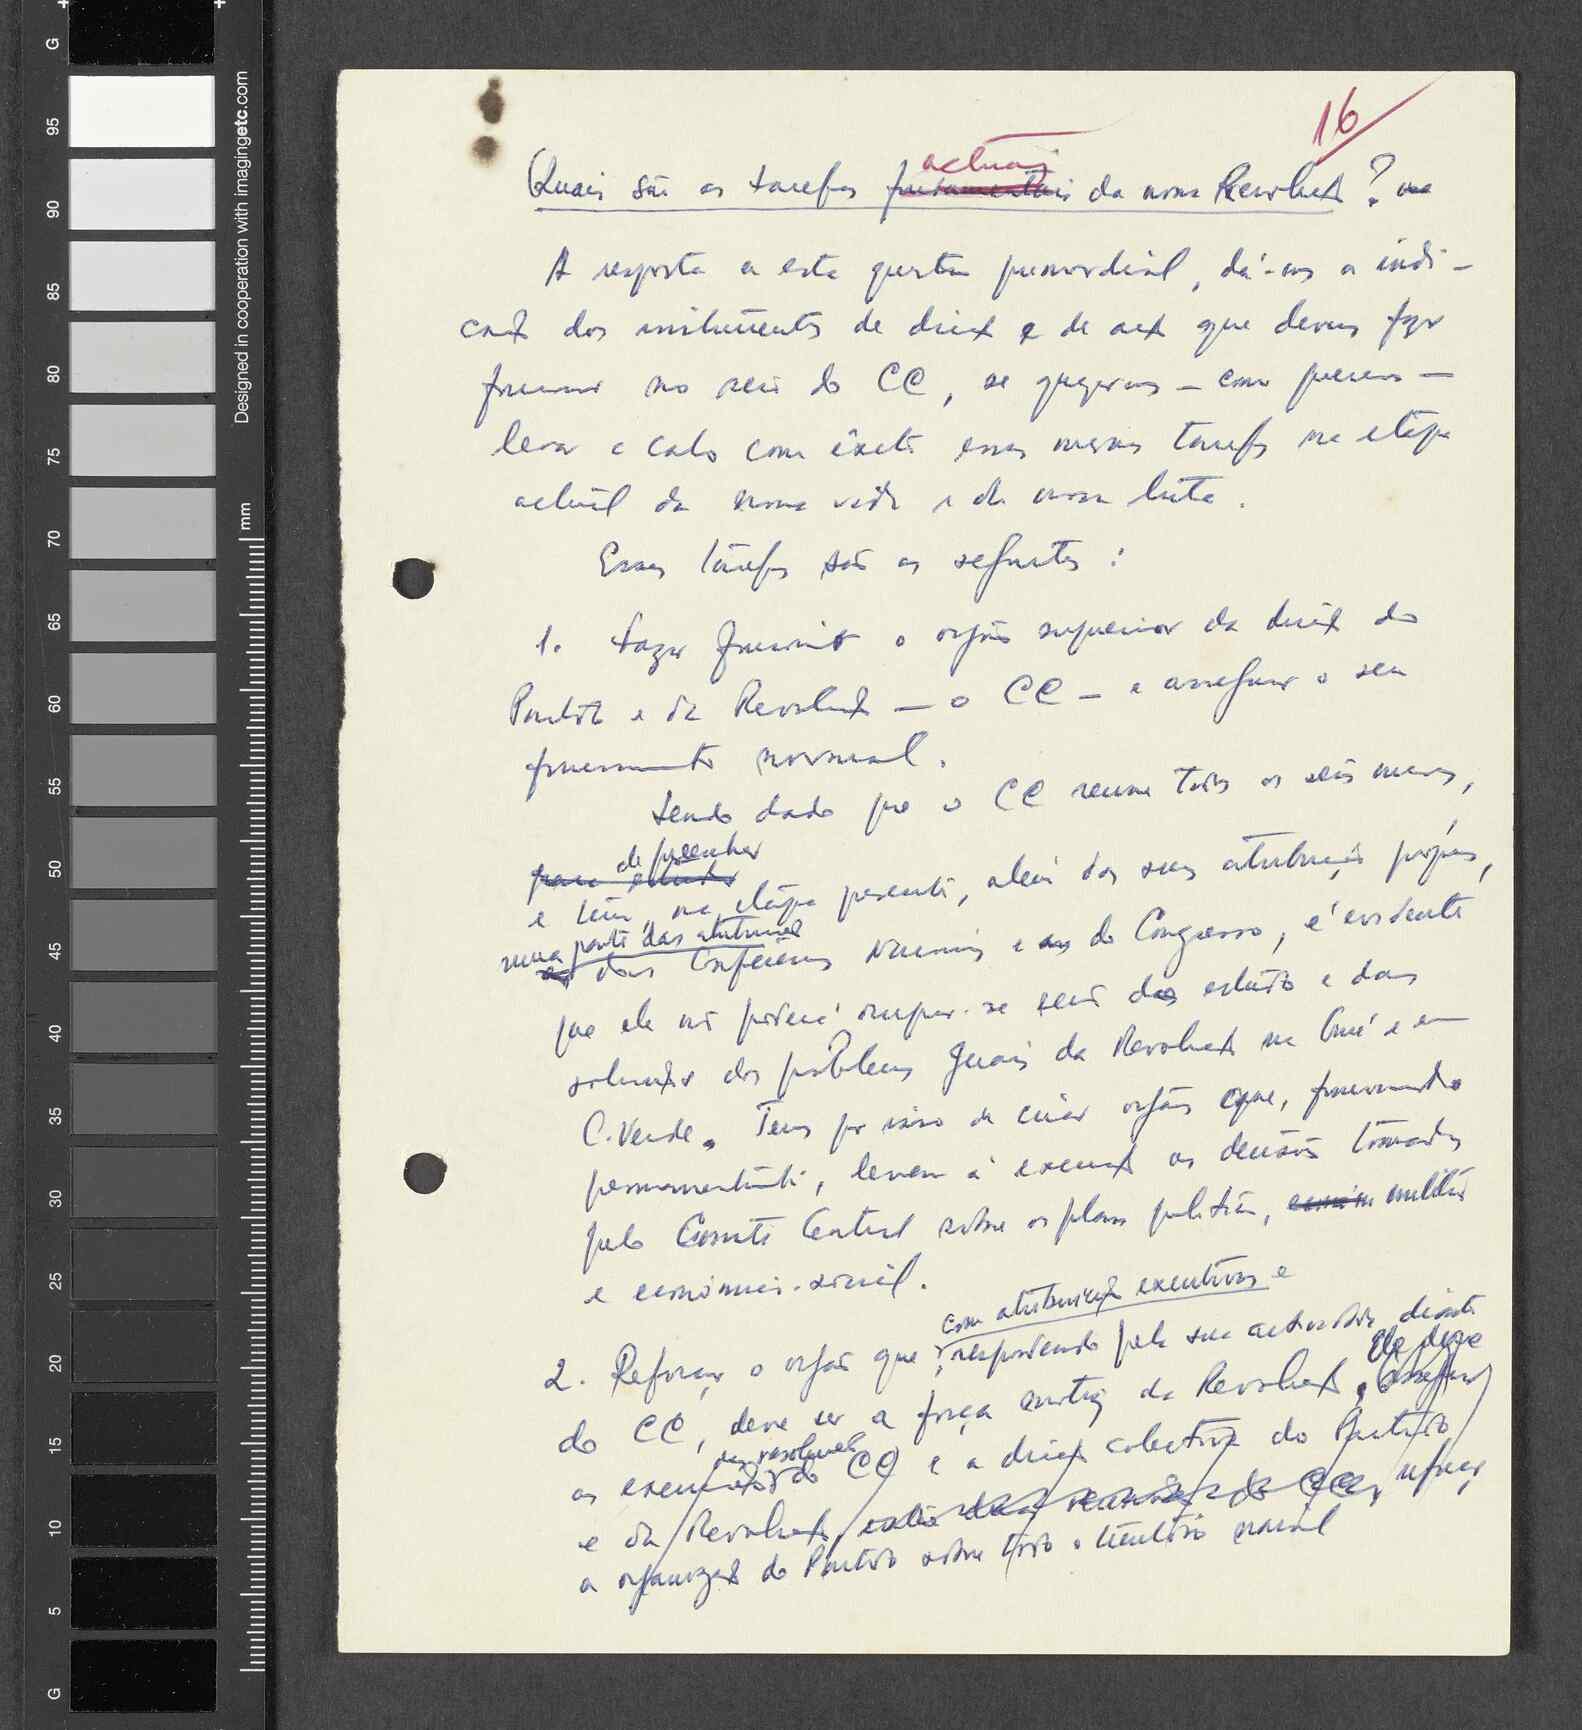 16
actuais
Quais são as tarefas fundamentais da nossa Revolução?
A resposta a esta questão primordial, dá-nos a indi-
cação dos instrumentos de direcção e de acção que devemos fazer
funcionar no seio do CC, se queremos — como queremos —
levar a cabo com êxito essas mesmas tarefas na etapa
actual da nossa vida e da nossa luta.
Essas tarefas são as seguintes:
1. Fazer funcionar o orgão superior da direcção do
Partido e da Revolução — o CC — e assegurar o seu
funcionamento normal.
Sendo dado que o CC reune todos os seis meses,
de preencher
e tem, na etapa presente, além das suas atribuições próprias,
uma parte das atribuições
das Conferências Nacionais e do Congresso, é evidente
que ele não poderá ocupar-se senão do estudo e das
soluções dos problemas gerais da Revolução na Guiné e em
C. Verde. Temos por isso de criar orgãos que, funcionando
permanentemente, levem à execução as decisões tomadas
pelo Comité Central sobre os planos político, militar
e económico-social.
com atribuições executivas e
2. Reforçar o orgão que, respondendo pela sua actividade diante
Ele deve
do CC, deve ser a força motriz da Revolução, assegurar
das resoluções
a execução do CC e a direcção colectiva do Partido
e da Revolução, reforçar
a organização do Partido sobre todo o território nacional
G
95
90
85
80
75
70
65
60
55
50
45
40
35
30
25
20
15
10
5
G
mm
Designed in cooperation with imagingetc.com